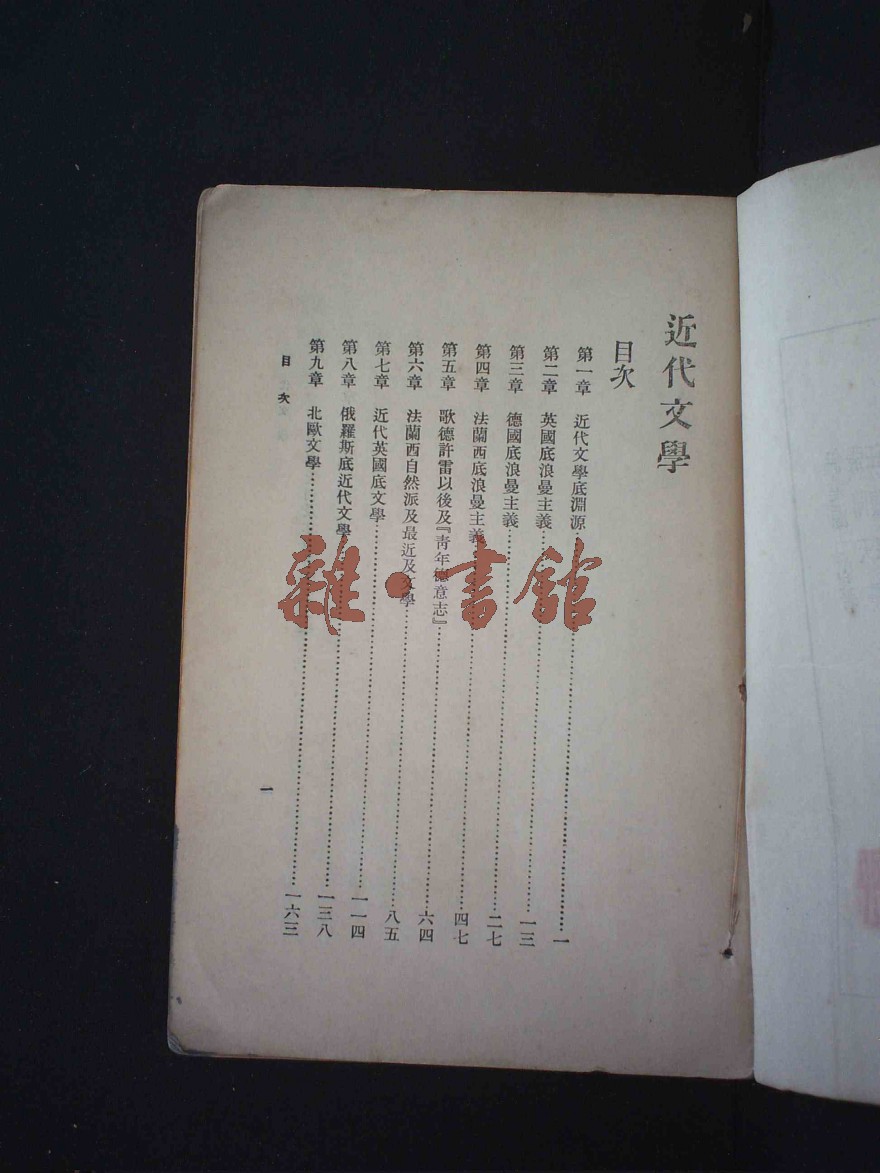 近代文學
目次
第一章 近代文學底淵源……一
第二章 英國底浪曼主義……一三
第三章 德國底浪曼主義……二七
第四章 法蘭西底浪曼主義……四七
第五章 歌德許雷以後及『青年德意志』……六四
第六章 法蘭西自然派及最近文學……八五
第七章 近代英國底文學……一一四
第八章 俄羅斯底近代文學……一三八
第九章 北歐文學……一六三
目 次
一
雜·書館